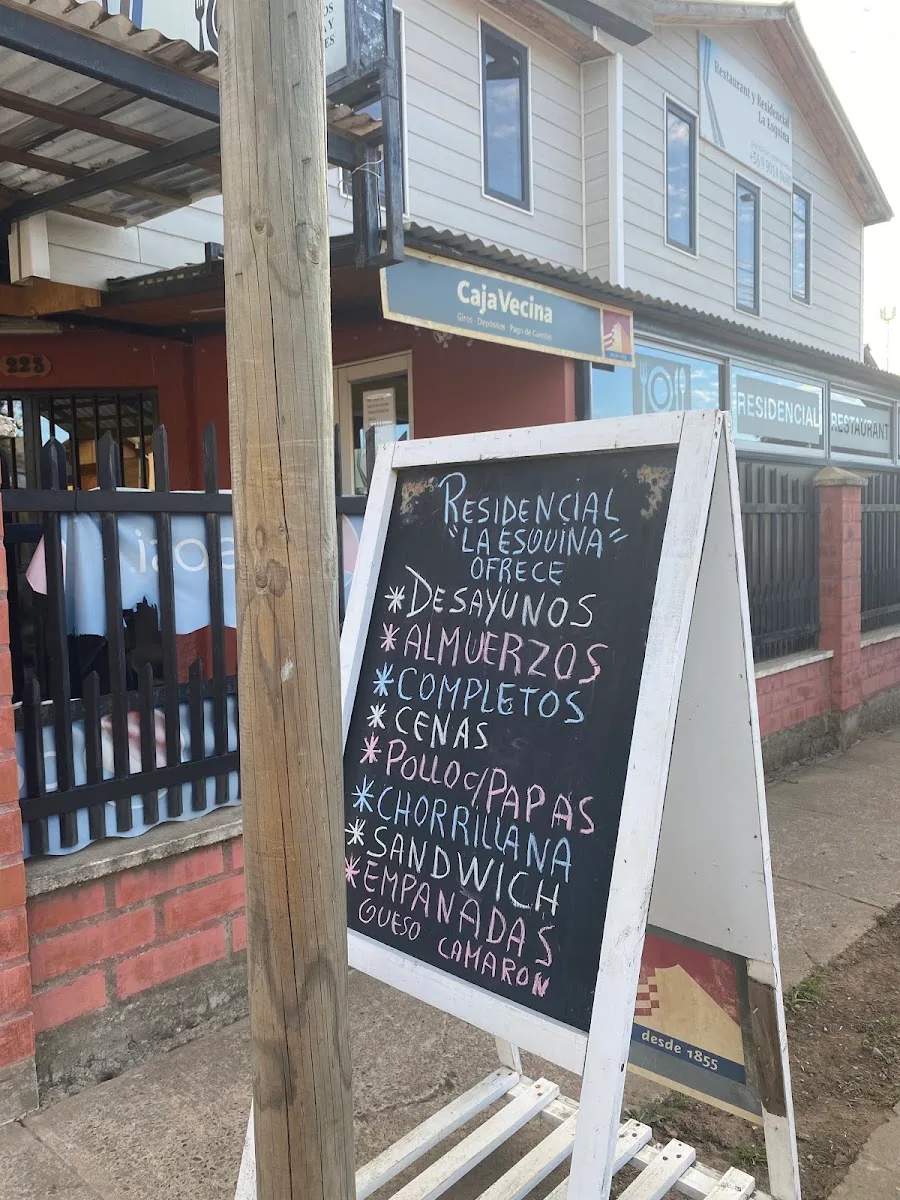 Restaurant y Residencial
La Esquina
CajaVecina
Giros - Depósitos - Pago de Cuentas
223
RESIDENCIAL
RESTAURANT
RESIDENCIAL
"LA ESQUINA"
OFRECE
*DESAYUNOS
*ALMUERZOS
*COMPLETOS
*CENAS
*POLLO C/PAPAS
*CHORRILLANA
*SANDWICH
*EMPANADAS
QUESO CAMARON
desde 1855